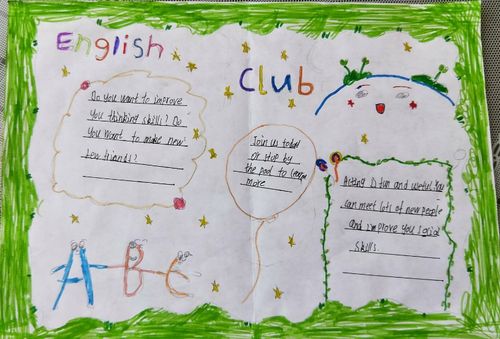 English
Club
Do you want to improve
you thinking skills? Do
you want to make new
few friends?
Join us today
or stop by
the pod to learn
more
Acting D fun and useful. You
can meet lots of new people
and improve you social
skills.
A B C